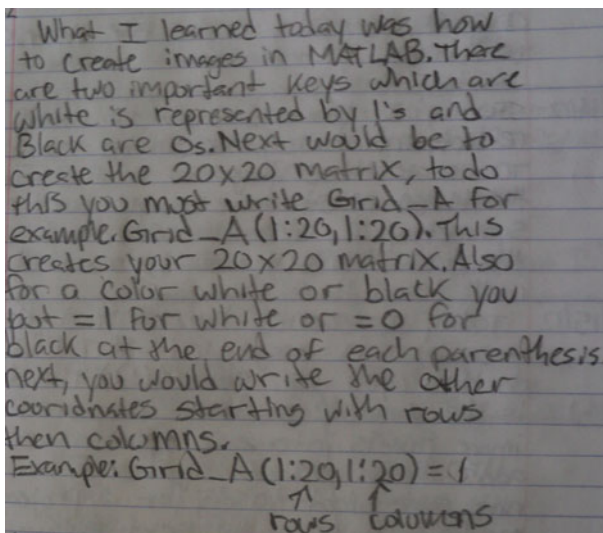 What I learned today was how
to create images in MATLAB. There
are two important keys which are
white is represented by 1's and
Black are 0s. Next would be to
create the 20x20 matrix, to do
this you must write Grid_A for
example. Grid_A(1:20,1:20). This
creates your 20x20 matrix. Also
for a color white or black you
put =1 for white or =0 for
black at the end of each parenthesis
next, you would write the other
couridnates starting with rows
then columns.
Example: Grid_A(1:20,1:20)=1
rows colowmns